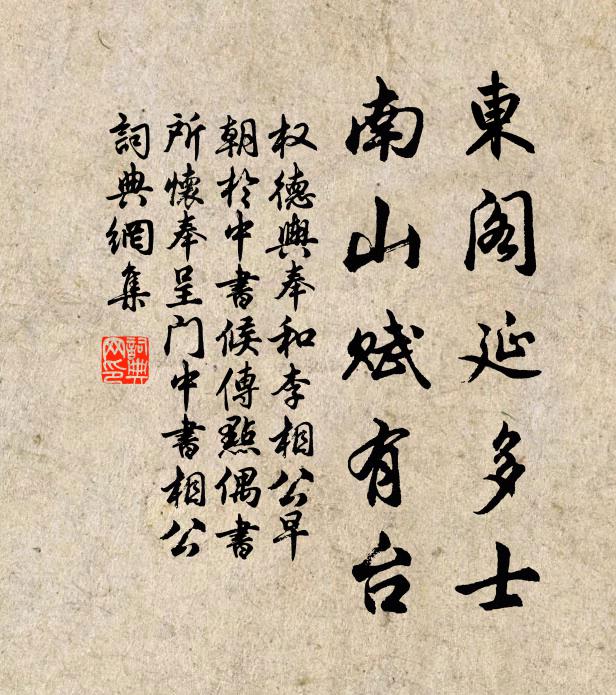 東閣延多士
南山賦有台
权德輿奉和李相公早
朝於中書候傳點偶書
所懷奉呈门中書相公
詞典網集
詞典网印